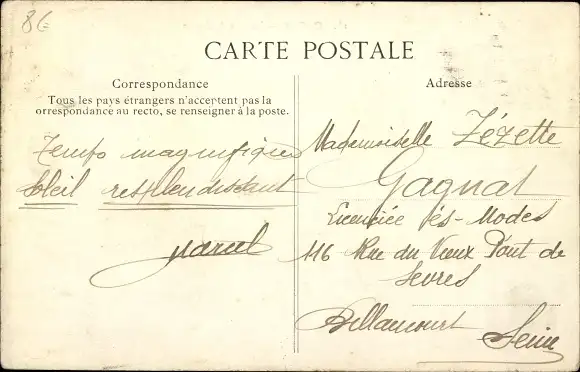 86
CARTE POSTALE
Correspondance
Tous les pays étrangers n'acceptent pas la
orrespondance au recto, se renseigner à la poste.
Temps magnifique
Soleil resplendissant
Marcel
Adresse
Mademoiselle Zézette
Gagnat
Licenciée ès-Modes
116 Rue du Vieux Pont de
Sevres
Billancourt
Seine